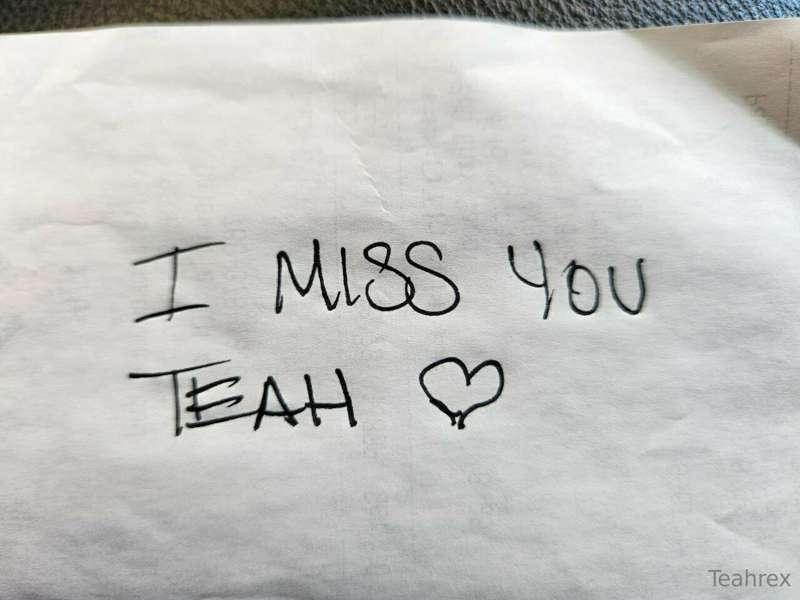 I MISS YOU
TEAH
Teahrex